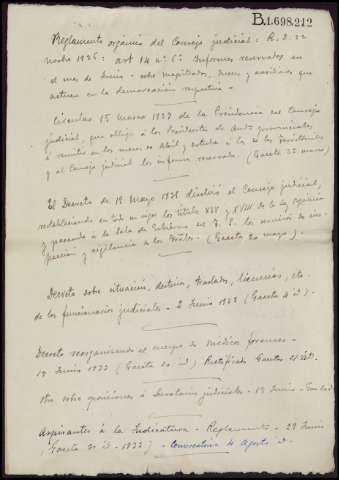 B.1.698.212
Reglamento orgánico del Consejo judicial: R. D. 22
novbre 1926: art 14 n.º 6º Informes reservados en
el mes de Junio - sobre magistrados, Jueces y auxiliares que
actúen en la demarcación respectiva -
Circular 15 marzo 1927 de la Presidencia del Consejo
judicial, que obliga a los Presidentes de Auds provinciales,
a remitir en los meses de Abril y octubre a los de las Territoriales
y al Consejo judicial los informes reservados. (Gaceta 22 marzo)
El Decreto de 19 Mayo 1931 disolvió el Consejo judicial,
restableciendo en todo su vigor los títulos XIV y XVIII de la ley orgánica
y pasando a la Sala de Gobierno del T. S. las funciones de
y vigilancia a los (Gaceta 20 mayo).
Decreto sobre situación, destino, traslados, licencias, etc.
de los funcionarios judiciales - 2 Junio 1933 (Gaceta 4 id).
Decreto reorganizando el cuerpo de médicos forenses -
17 Junio 1933 (Gaceta 20 id) Rectificado Gaceta 21 id.
Otro sobre oposiciones a Secretarios judiciales - 17 Junio -
Aspirantes á la Judicatura - Reglamento - 29 Junio
(Gaceta 30 id - 1933) - Convocatoria 4 Agosto id.